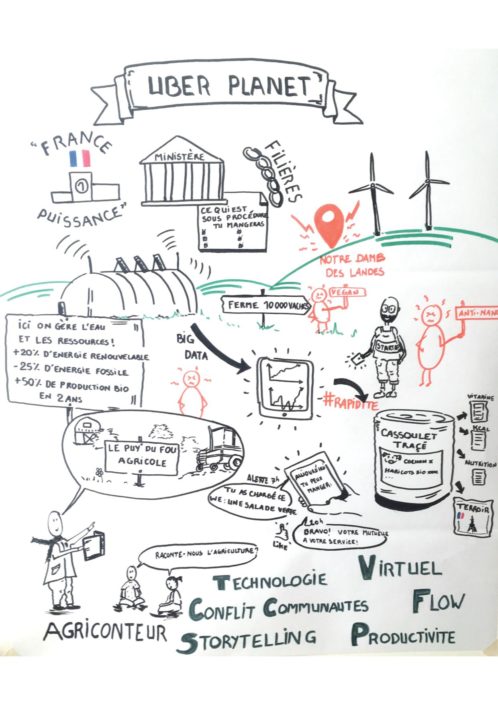 UBER PLANET
"FRANCE
PUISSANCE"
1
MINISTÈRE
FILIÈRES
CE QUI EST
SOUS PROCÉDURE
TU MANGERAS
NOTRE DAME
DES LANDES
FERME 10 000 VACHES
VEGAN
ANTI-MAN
ICI ON GÈRE L'EAU
ET LES RESSOURCES!
+20% D'ENERGIE RENOUVELABLE
-25% D'ENERGIE FOSSILE
+50% DE PRODUCTION BIO
EN 2 ANS
BIG
DATA
#RAPIDITÉ
CASSOULET
TRAÇÉ
COCHON X
HARICOTS BIO
VITAMINE
KCAL
NUTRITION
TERROIR
LE PUY DU FOU
AGRICOLE
AUJOURD'HUI
TU PEUX
MANGER:
TU AS CHARGÉ CE
WE: UNE SALADE VERTE
Like
BRAVO! VOTRE MUTUELLE
A VOTRE SERVICE!
RACONTE-NOUS L'AGRICULTURE?
AGRICONTEUR
TECHNOLOGIE
VIRTUEL
CONFLIT COMMUNAUTES
FLOW
STORYTELLING
PRODUCTIVITE